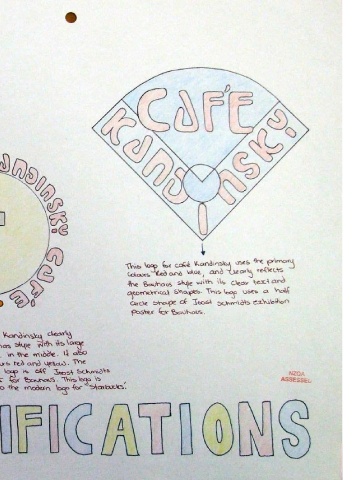 CAFE
KANDINSKY
KANDINSKY CAFE
This logo for café Kandinsky uses the primary
colours Red and blue, and clearly reflects
the Bauhaus style with its clear text and
geometrical shapes. This logo uses a half
circle shape of Joost Schmidts exhibition
poster for Bauhaus.
Kandinsky clearly
style with its large
in the middle. It also
red and yellow. The
logo is off Joost Schmidts
for Bauhaus. This logo is
the modern logo for "Starbucks".
NZQA
ASSESSED
IFICATIONS